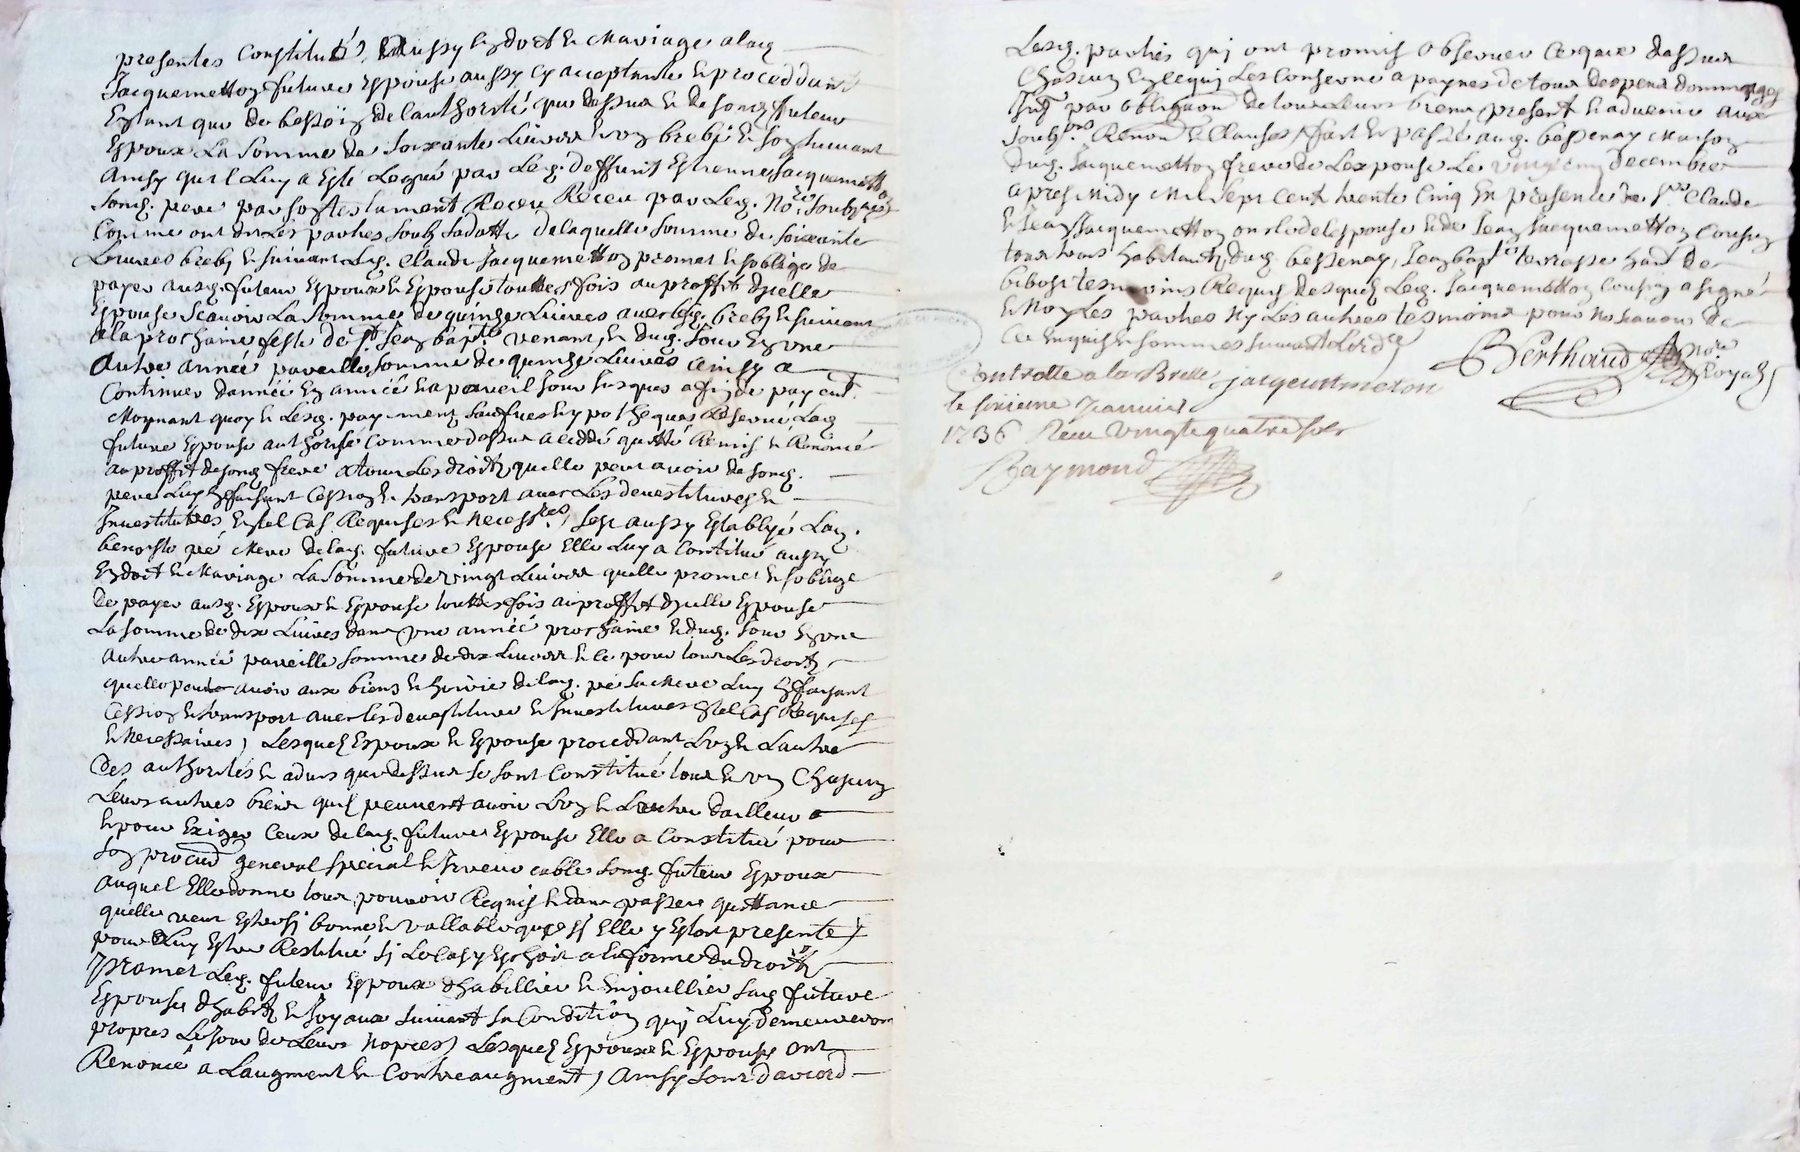 presentes Constitué, Aussy en dot et Mariage a lad.
Jacquemetton future Espouse aussy cy acceptante et proceddant
Entant que de bessoin de lauthorité que dessus et de song. futeur
Espoux La somme de soixante Livres et un brebi et son suivant
Ainsy quil Luy a Esté Legué par Led. deffunt Estienne Jacquemetton
Song. pere par son testament Receu Receu par Led. No.re soubz.né
Comme ont dit Les parties soubz sa datte de laquelle somme de soixante
Livres brebi et suivant Led. Claude Jacquemetton promet et soblige de
payer ausd. futeur Espoux et Espouse touttes fois au proffit dycelle
Espouse Scavoir La somme de quinze Livres avec lesd. brebi et suivant
a la prochaine feste de St Jean bapt.te venant, et dud. Jour En une
autre année pareille somme de quinze Livres ainsy a
Continuer dannée En année a pareil Jour Jusques a fin de payem.t
Moynant quoy et Lesd. payement sauf ses hypotheques Reservé Lad.
future Espouse authorisé comme dessus a ceddé quitté Remis et Renoncé
au proffit de song. frere a tous Les droits quelle peut avoir de song.
pere Luy En faisant Cession et transport avec Les devestitures et
Investitures En tel Cas Requises et Necess.res, sest aussy Establye Lad.
benoiste pé Mere de lad. future Espouse Elle Luy a Constitué aussy
En dot et Mariage La somme de vingt Livres quelle promet et soblige
De payer ausd. Espoux et Espouse touttes fois au proffit dycelle Espouse
La somme de dix Livres dans une année prochaine et dud. Jour En une
autre année pareille somme de dix Livres et ce pour tous Les droits
quelle peut avoir aux biens et hoirie de lad. pé sa Mere Luy En faisant
Cession et transport avec les devestitures et Investitures En tel Cas Requises
et Necessaires, Lesquels Espoux et Espouse proceddant Lun et Lautre
Des authorités et advis que dessus se sont Constitué tous et un Chascun
Leurs autres biens quils peuvent avoir Lun et Lautre dailleurs
et pour Exiger Ceux de lad. future Espouse Elle a Constitué pour
son procur. general special et Irrevocable song. futeur Espoux
auquel Elle donne tout pouvoir Requis et dans passer quittance
quelle veut Estre sy bonne et vallable que sy Elle y Estoit presente
pour Luy Estre Restitué sy Le Cas y Eschoit a la forme du droit
promet Led. futeur Espoux dhabillier et Enjoullier sad. future
Espouse dhabits et Joyaux suivant sa Condition quy Luy demeureront
propres Le Jour de Leurs Nopces, Lesquels Espoux et Espouse ont
Renoncé a Laugment et Contreaugment, Ainsy sont daccord
Lesd. parties quy ont promis observer Ce que dessus
Chascun En Ce quy Les Conserne a paynes de tous despens dommages
Int. par obligaon de tous Leurs biens present et advenir aux
soub.ons Renon. et Clauses, fait et passé aud. bessenay Maison
dud. Jacquemetton frere de Lespouse Le vingt cinq decembre
apres Midy Mil sept cent trente Cinq En presence de S.rs Claude
et Jean Jacquemetton oncle de lespouse et de Jean Jacquemetton Cousin
tous trois habitants dud. bessenay, Jean bapt.te terrasse hant de
bibost tesmoins Requis desquels Led. Jacquemetton Cousin a signé
et Non Les parties Ny Les autres tesmoins pour Ne scavoir de
Ce Enquis et sommes suivant Lord.ce
Berthaud No.re Royal
Controllé a la Brelle jacqeumeton
le sixieme Janvier
1736 Receu vingt quatre sols
Raymond